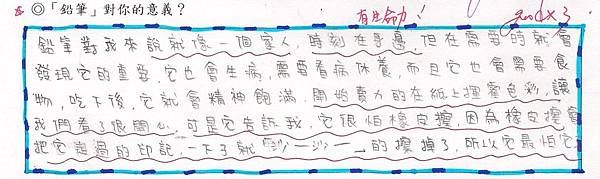 ◎「鉛筆」對你的意義？
有生命力！
good x 3
鉛筆對我來說就像一個家人，時刻在手邊，但在需要時就會
發現它的重要，它也會生病，需要看病休養，而且它也會需要食
物，吃下後，它就會精神飽滿，開始賣力的在紙上揮灑色彩，讓
我們看了很開心，可是它告訴我，它很怕橡皮擦，因為橡皮擦會
把它走過的印記，一下子就「ㄕㄨㄚ—ㄕㄨㄚ—」的擦掉了，所以它最怕它